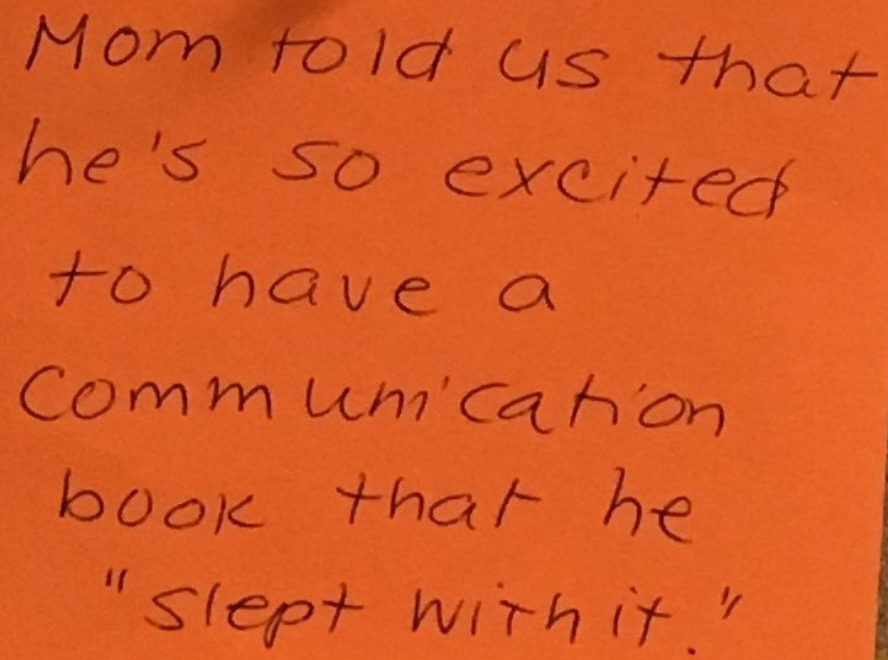 Mom told us that
he's so excited
to have a
Communication
book that he
"slept with it."